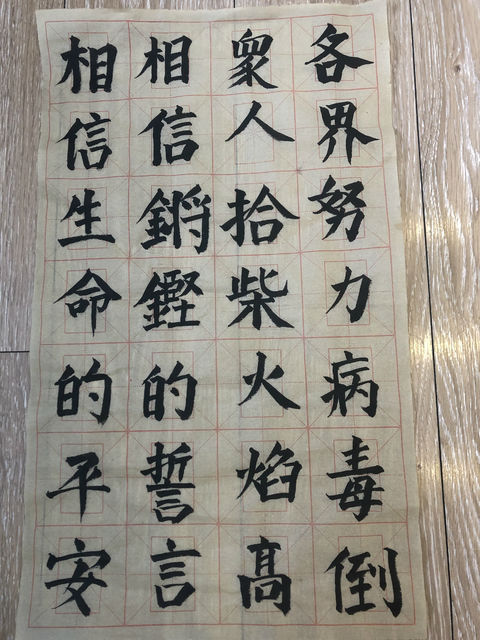 各界努力病毒倒
衆人拾柴火焰高
相信鏘鏗的誓言
相信生命的平安